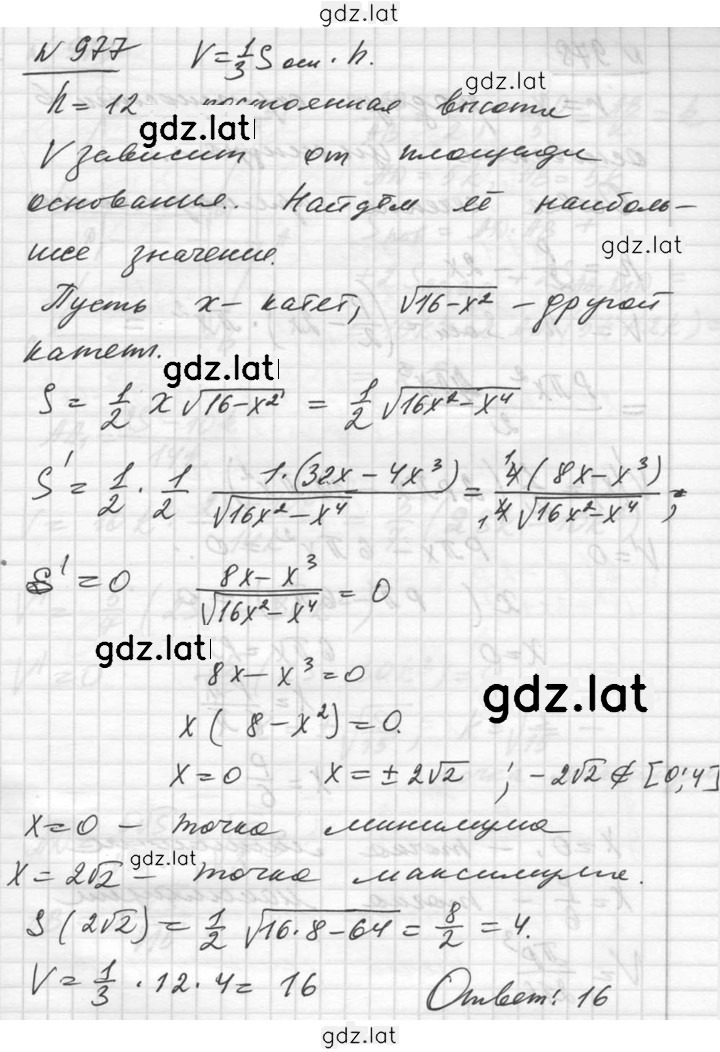 gdz.lat
N 977 V=1/3 S осн·h.
h=12 постоянная высота
gdz.lat
gdz.lat
V зависит от площади
основания. Найдём её наиболь-
gdz.lat
шее значение.
Пусть x- катет, √(16-x²) - другой
катет.
gdz.lat
S = 1/2 x√(16-x²) = 1/2 √(16x²-x⁴)
S' = 1/2 · 1/2 1·(32x-4x³)/√(16x²-x⁴) = 4(8x-x³)/4√(16x²-x⁴);
S'=0 (8x-x³)/√(16x²-x⁴) = 0
gdz.lat
8x-x³=0
gdz.lat
x(8-x²)=0.
x=0 x=±2√2 ; -2√2 ∉ [0;4]
x=0 - точка минимума
gdz.lat
x=2√2 - точка максимума.
S(2√2) = 1/2 √(16·8-64) = 8/2 = 4.
V = 1/3 · 12 · 4 = 16 Ответ: 16
gdz.lat